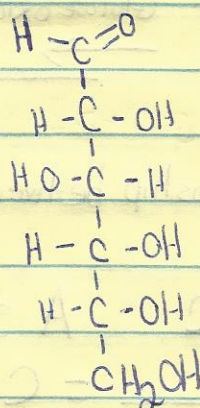 H - C = O
H - C - OH
HO - C - H
H - C - OH
H - C - OH
CH₂OH